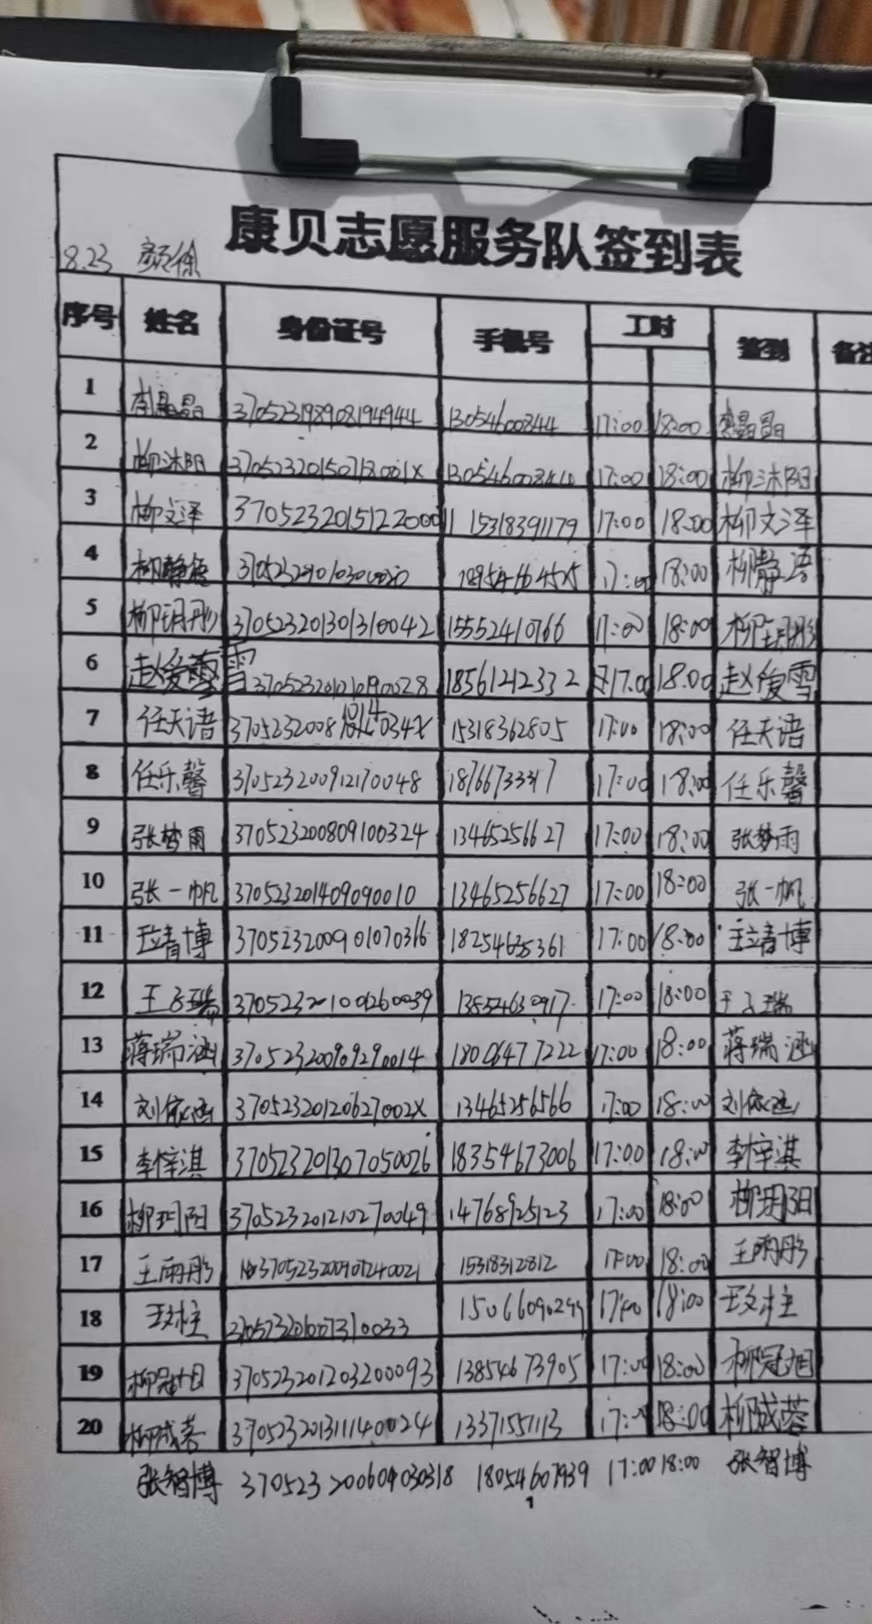 康贝志愿服务队签到表
8.23 颜徐
序号 姓名 身份证号 手机号 工时 签到 备注
1 李晶晶 370523198908194944 17:00 18:00 李晶晶
2 柳沐阳 17:00 18:00 柳沐阳
3 柳文泽 15318391179 17:00 18:00 柳文泽
4 柳静 17:00 18:00 柳静语
5 370523201301310042 15552410766 17:00 18:00
6 赵爱雪 18561212332 17:00 18:00 赵爱雪
7 任天语 15318362805 17:00 18:00 任天语
8 任乐馨 370523200912170048 17:00 18:00 任乐馨
9 张梦雨 370523200809100324 13465256627 17:00 18:00 张梦雨
10 张一帆 370523201409090010 13465256627 17:00 18:00 张一帆
11 370523200901070366 17:00 18:00
12 王子瑞 17:00 18:00 王子瑞
13 蒋瑞涵 370523200909290014 17:00 18:00 蒋瑞涵
14 刘依涵 37052320120627002X 13465256566 17:00 18:00 刘依涵
15 李梓淇 370523201307050026 18354673006 17:00 18:00 李梓淇
16 柳玥阳 370523201210270049 14768925123 17:00 18:00 柳玥阳
17 王雨彤 15318312812 17:00 18:00 王雨彤
18 17:00 18:00
19 柳冠旭 370523201203200093 13854673905 17:00 18:00 柳冠旭
20 柳成蓉 370523201311140024 13371551113 17:00 18:00 柳成蓉
张智博 370523200604030318 18054607939 17:00 18:00 张智博
1